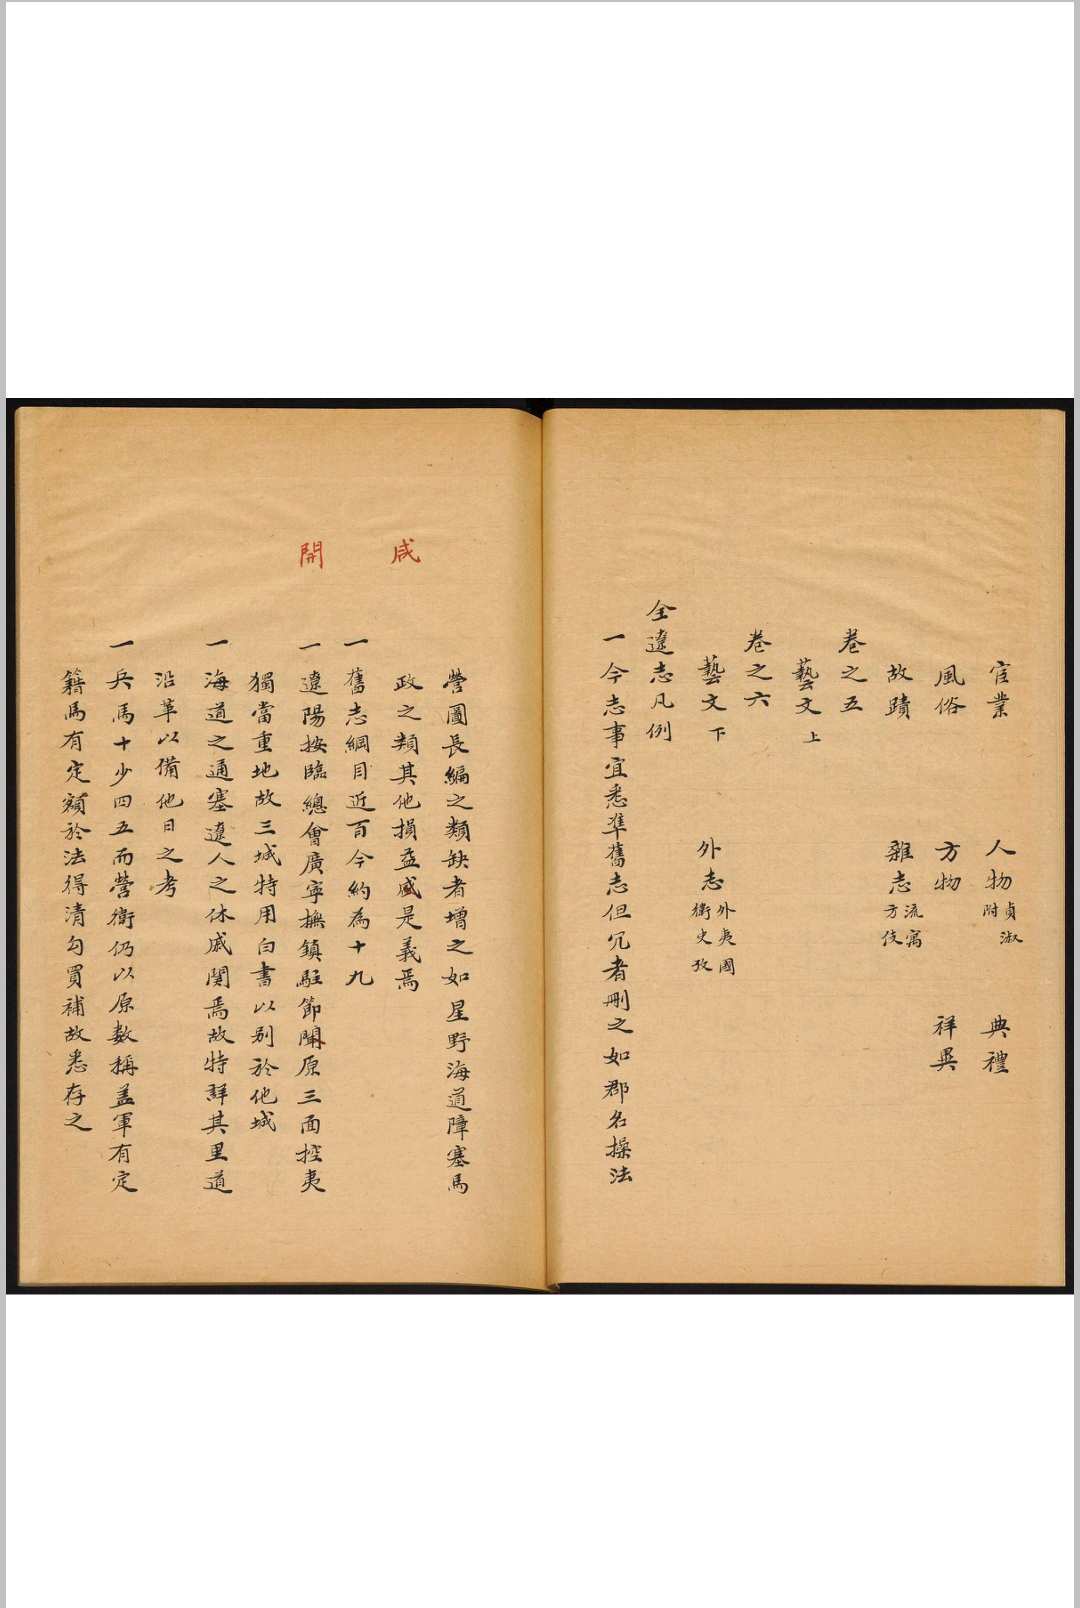 宦業　人物貞淑附　典禮
風俗　方物　祥異
故蹟　雜志流寓方伎
卷之五
藝文上
卷之六
藝文下　外志外夷國衛史攷
全遼志凡例
一今志事宜悉準舊志但冗者刪之如郡名操法
營圖長編之類缺者增之如星野海道障塞馬
政之類其他損益咸是義焉
咸
一舊志綱目近百今約為十九
一遼陽按臨總會廣寧撫鎮駐節開原三面控夷
開
獨當重地故三城特用白書以别於他城
一海道之通塞遼人之休戚関焉故特詳其里道
沿革以備他日之考
一兵馬十少四五而營衛仍以原数稱盖軍有定
籍馬有定額於法得清勾買補故悉存之